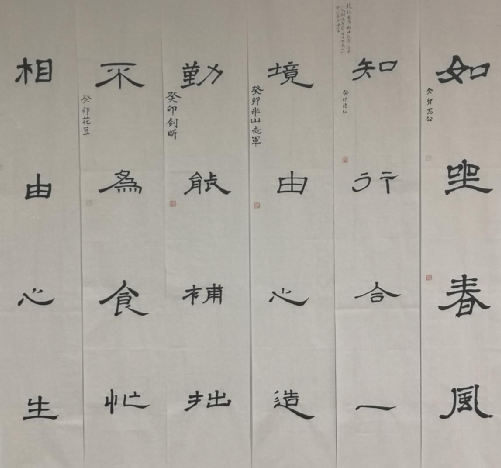 如坐春風
癸卯
知行合一
癸卯
境由心造
癸卯米山志軍
勤能補拙
癸卯剑昕
不為食忙
癸卯花立
相由心生